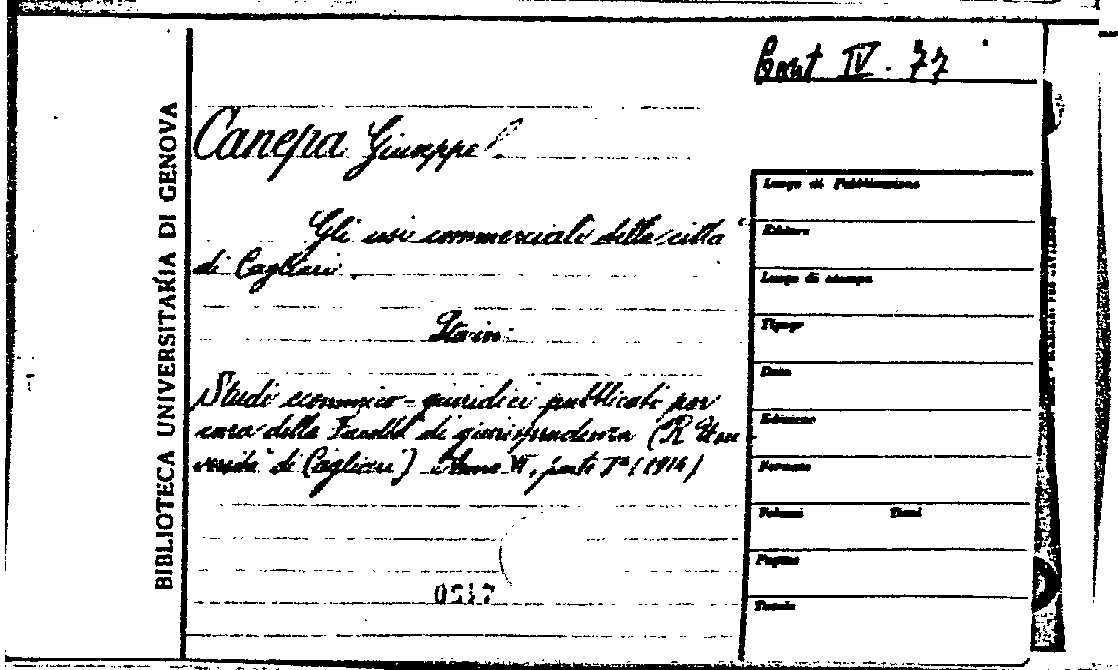 Cont IV. 77
BIBLIOTECA UNIVERSITARIA DI GENOVA
Canepa Giuseppe
Gli usi commerciali della città
di Cagliari
Sta in:
Studi economico-giuridici pubblicati per
cura della Facoltà di giurisprudenza (R. Uni-
versità di Cagliari) Anno VI, parte Iª (1914)
Luogo di Pubblicazione
Editore
Luogo di stampa
Tipogr
Data
Edizione
Formato
Volumi Tomi
Pagine
Tavole